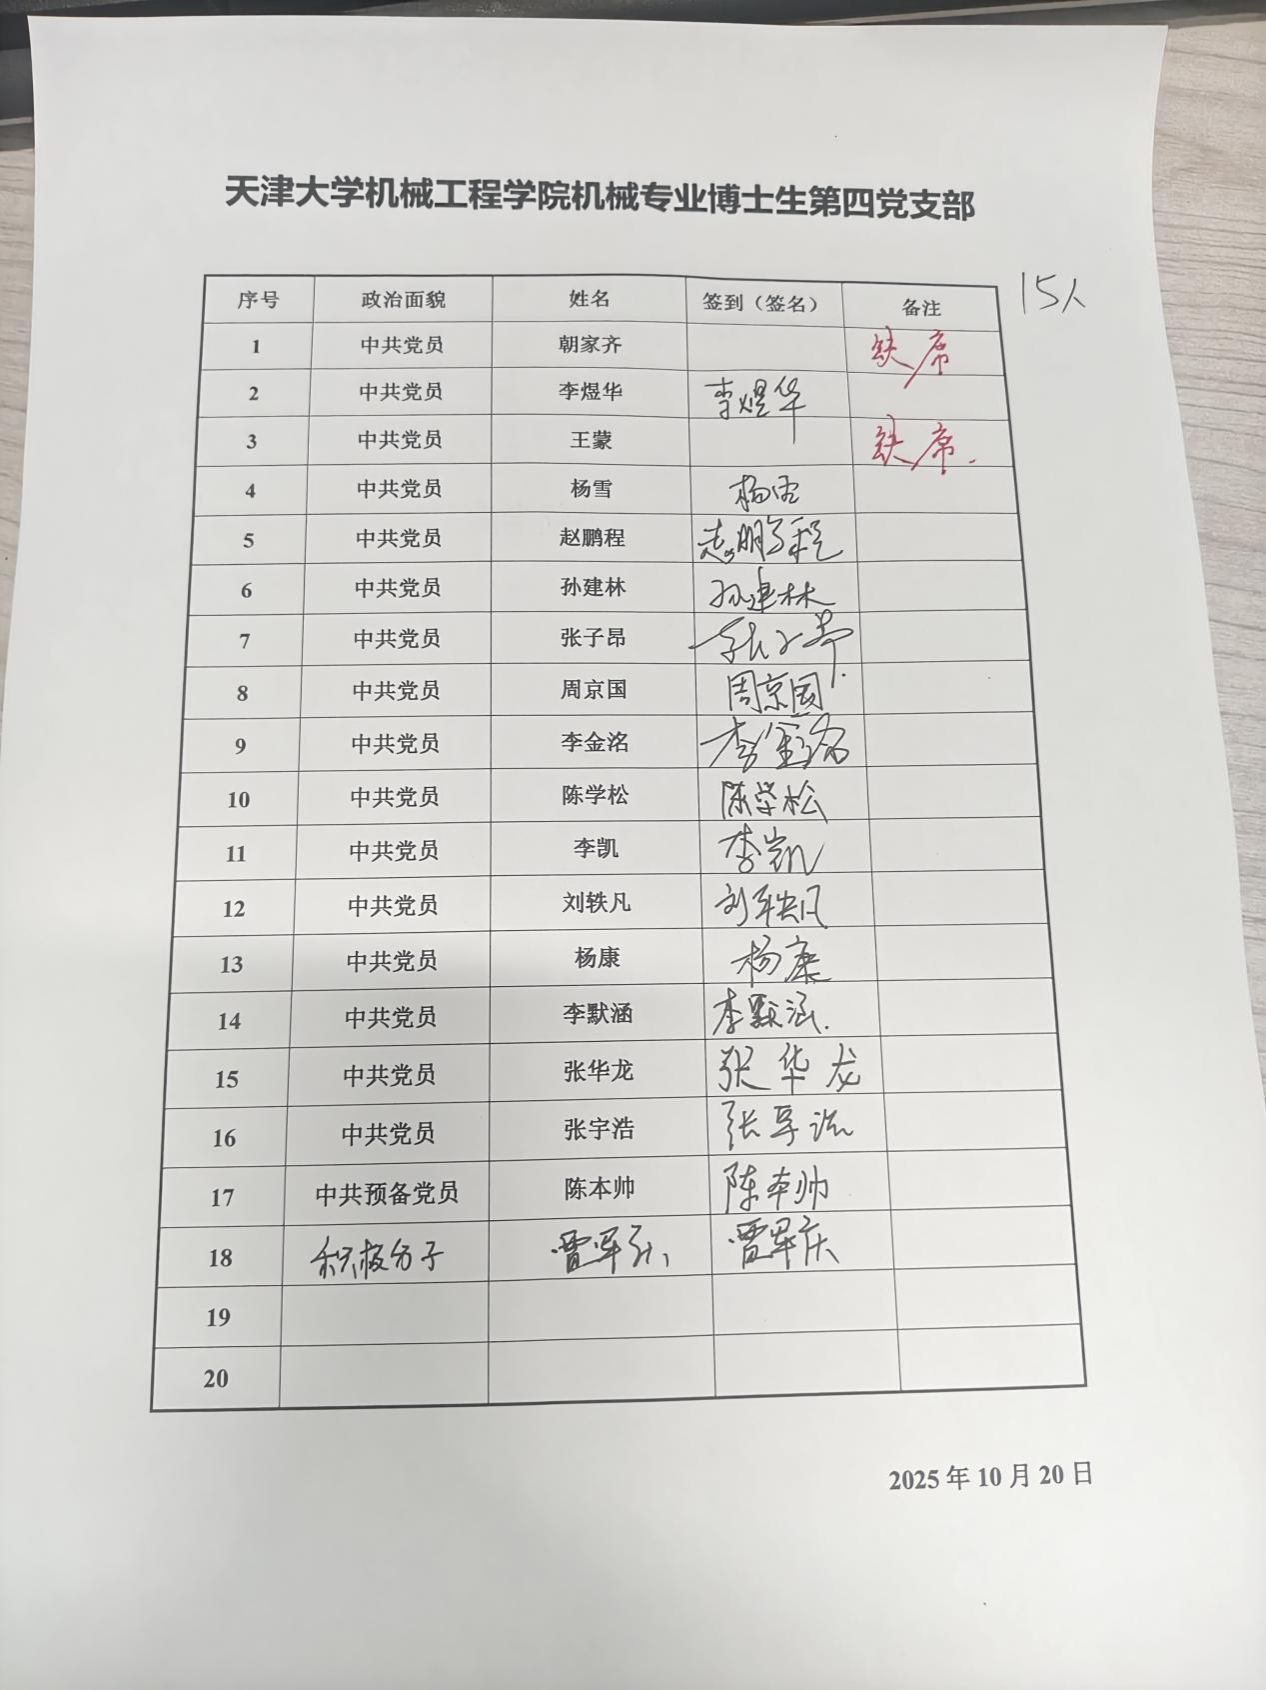 天津大学机械工程学院机械专业博士生第四党支部
15人
序号 政治面貌 姓名 签到（签名） 备注
1 中共党员 朝家齐 缺席
2 中共党员 李煜华 李煜华
3 中共党员 王蒙 缺席.
4 中共党员 杨雪 杨雪
5 中共党员 赵鹏程 赵鹏程
6 中共党员 孙建林 孙建林
7 中共党员 张子昂 张子昂
8 中共党员 周京国 周京国
9 中共党员 李金洺 李金洺
10 中共党员 陈学松 陈学松
11 中共党员 李凯 李凯
12 中共党员 刘轶凡 刘轶凡
13 中共党员 杨康 杨康
14 中共党员 李默涵 李默涵.
15 中共党员 张华龙 张华龙
16 中共党员 张宇浩 张宇浩
17 中共预备党员 陈本帅 陈本帅
18 积极分子
19
20
2025 年 10 月 20 日